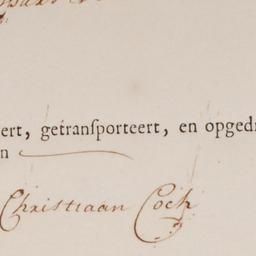 eert, getranſporteert, en opgedr
n
Christiaan Coch